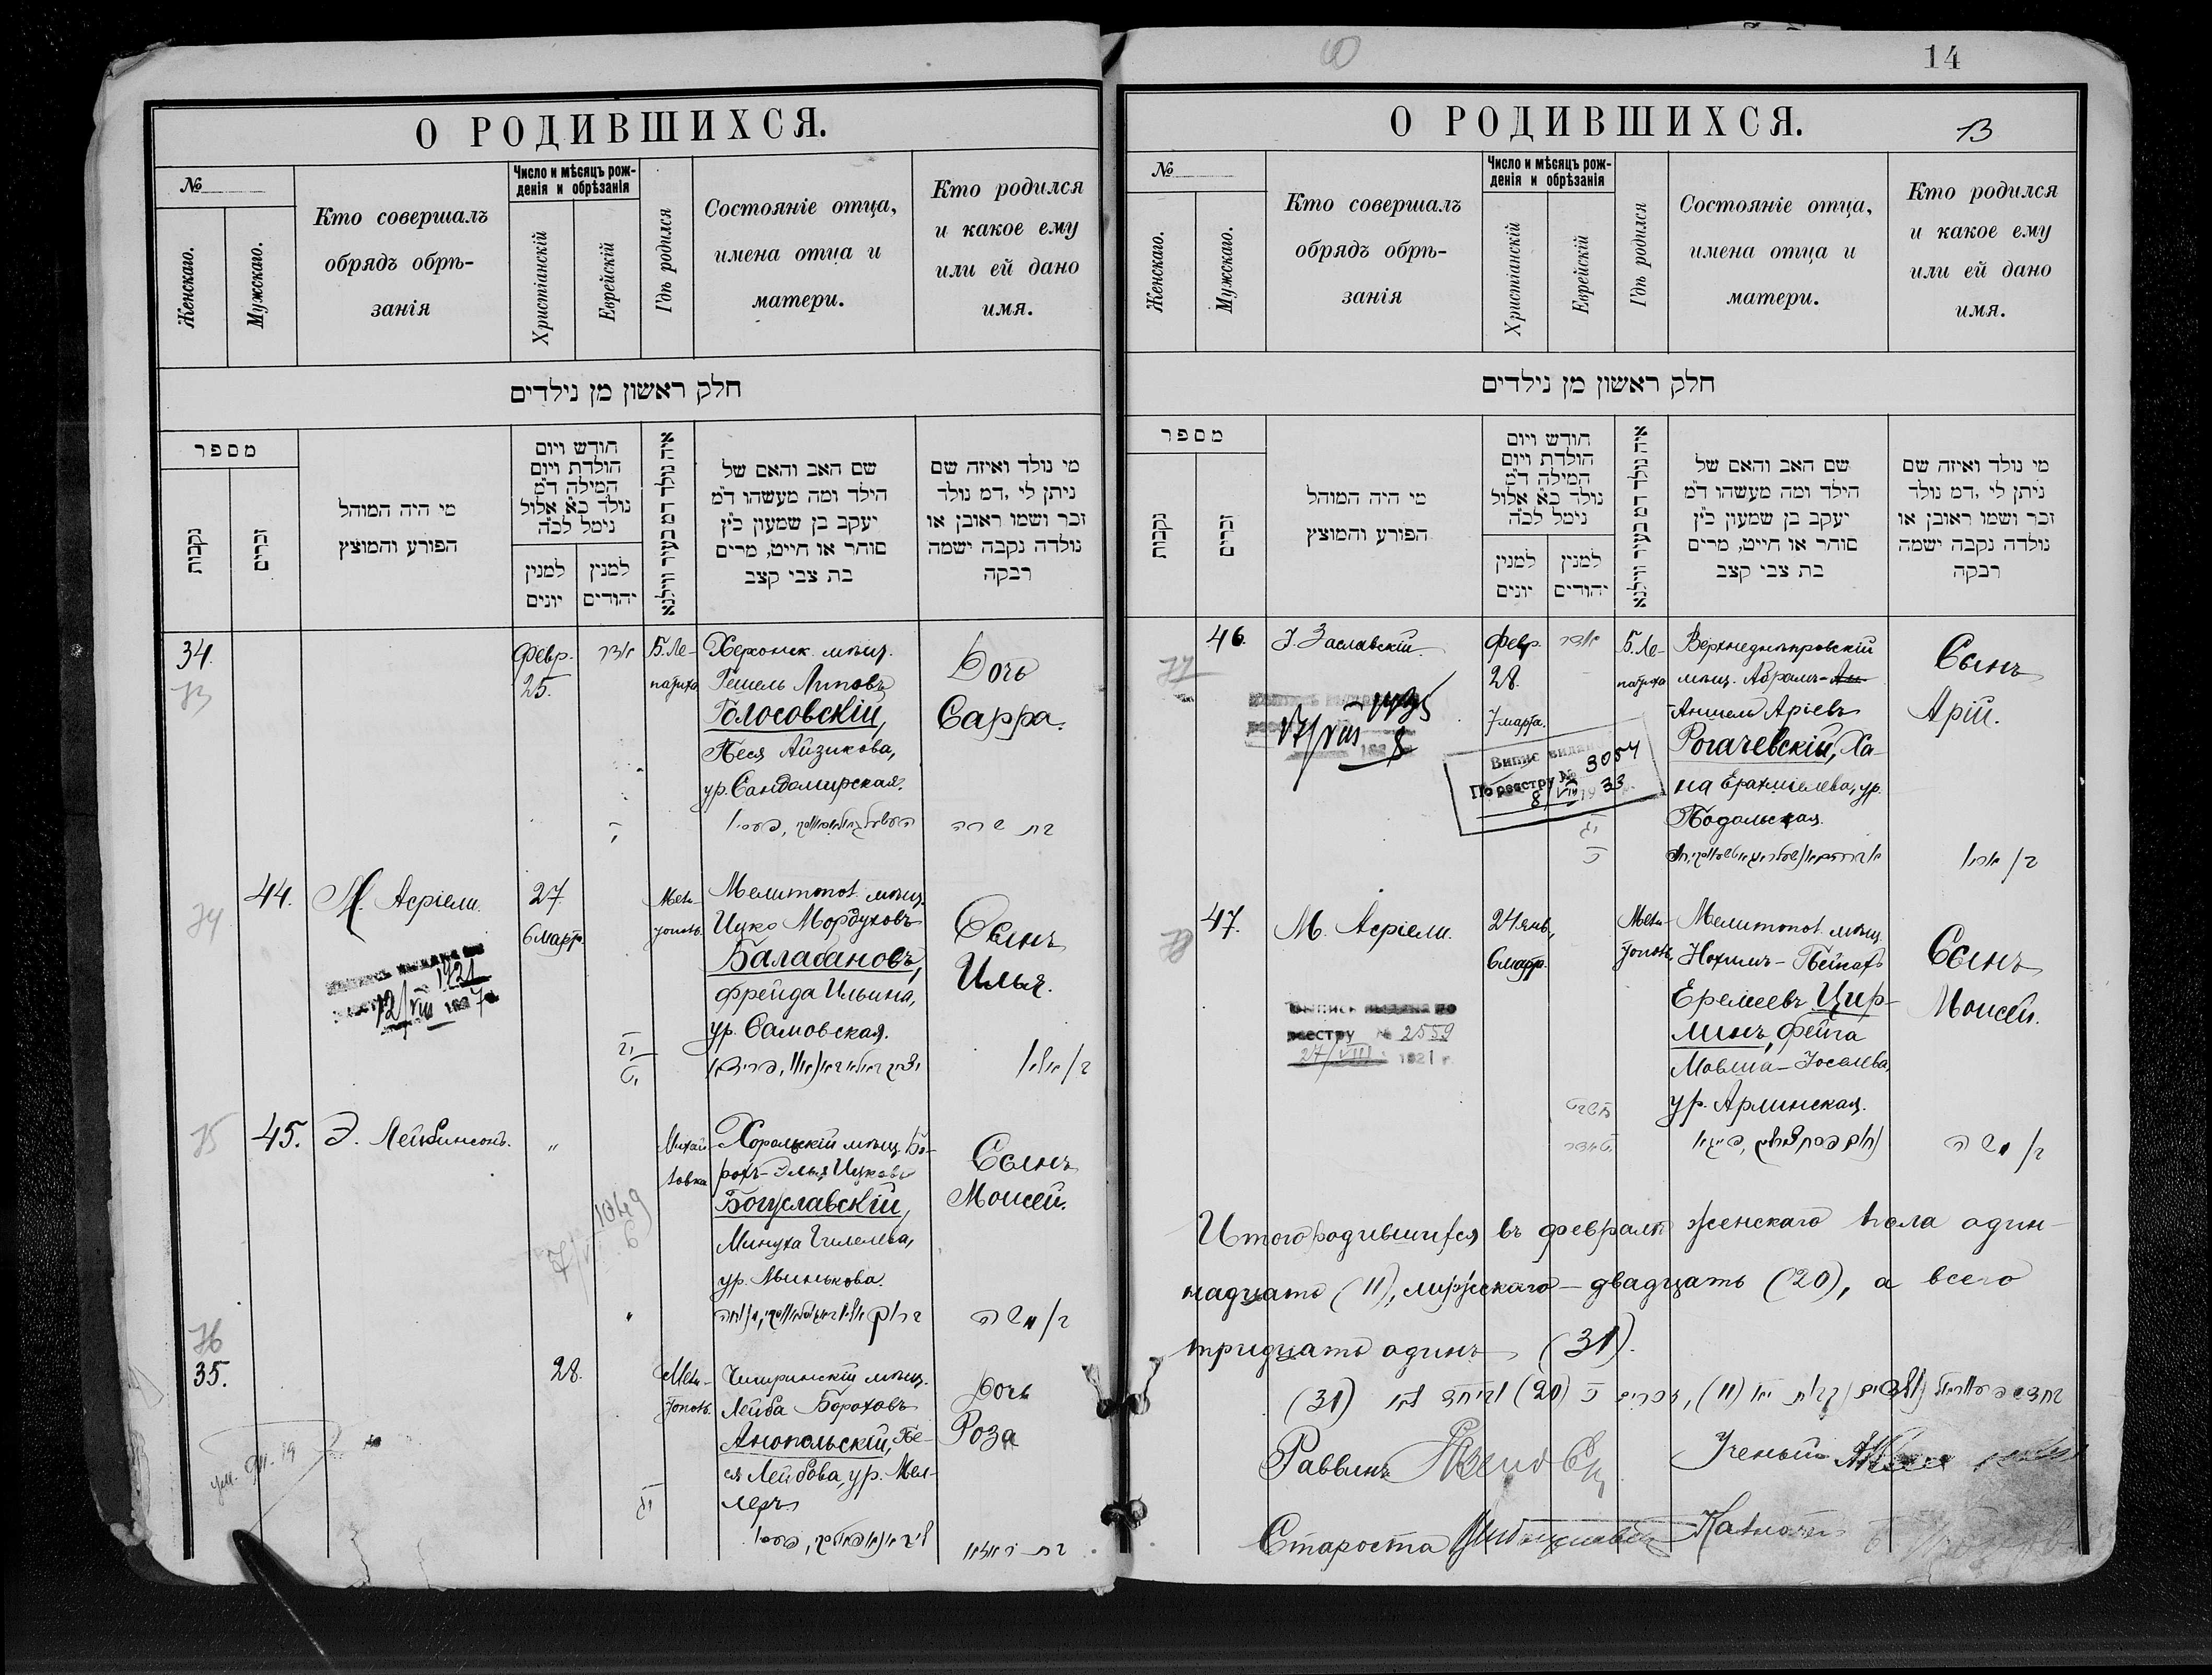 О РОДИВШИХСЯ.
№
Женскаго.
Мужскаго.
Кто совершалъ
обрядъ обрѣ-
занія
Число и мѣсяцъ рож-
денія и обрѣзанія
Христіанскій
Еврейскій
Гдѣ родился
Состояніе отца,
имена отца и
матери.
Кто родился
и какое ему
или ей дано
имя.
חלק ראשון מן נילדים
מספר
נקבות
זכרים
מי היה המוהל
הפורע והמוצץ
חודש ויום
הולדת ויום
המילה ד"מ
נולד כ"א אלול
נימל לכ"ה
למנין
יונים
למנין
יהודים
איה נולד דמ בעיר ווילנא
שם האב והאם של
הילד ומה מעשהו ד"מ
יעקב בן שמעון כ"ץ
סוחר או חייט, מרים
בת צבי קצב
מי נולד ואיזה שם
ניתן לי ,דמ נולד
זכר ושמו ראובן או
נולדה נקבה ישמה
רבקה
34.
73
Февр.
25.
אדר
Б. Ле-
патиха
Херсонск. мѣщ.
Гешель Липовъ
Голосовскій,
Песя Айзикова,
ур. Сандомирская.
Дочь
Сарра.
בת שרה
74
44.
М. Асріели.
27
6 марта.
Мели-
тополь.
Мелитопол. мѣщ.
Ицко Мордуховъ
Балабановъ,
Фрейда Ильина,
ур. Самовская.
Сынъ
Илья.
1921
12/VIII 1927
75
45.
Э. Лейбинсонъ.
"
Михай-
ловка
Хорольскій мѣщ. Бо-
рохъ-Эльи Ицковъ
Богуславскій,
Минуха Гилелева,
ур. Минькова.
Сынъ
Моисей.
1049
ב/ משה
76
35.
28.
Мели-
тополь.
Чигиринскій мѣщ.
Лейба Бороховъ
Анопольскій, Пе-
ся Лейбова, ур. Мел-
леръ
Дочь
Роза
14
О РОДИВШИХСЯ.
13
№
Женскаго.
Мужскаго.
Кто совершалъ
обрядъ обрѣ-
занія
Число и мѣсяцъ рож-
денія и обрѣзанія
Христіанскій
Еврейскій
Гдѣ родился
Состояніе отца,
имена отца и
матери.
Кто родился
и какое ему
или ей дано
имя.
חלק ראשון מן נילדים
מספר
נקבות
זכרים
מי היה המוהל
הפורע והמוצץ
חודש ויום
הולדת ויום
המילה ד"מ
נולד כ"א אלול
נימל לכ"ה
למנין
יונים
למנין
יהודים
איה נולד דמ בעיר ווילנא
שם האב והאם של
הילד ומה מעשהו ד"מ
יעקב בן שמעון כ"ץ
סוחר או חייט, מרים
בת צבי קצב
מי נולד ואיזה שם
ניתן לי ,דמ נולד
זכר ושמו ראובן או
נולדה נקבה ישמה
רבקה
77
46.
І. Заславскій.
Февр.
28.
7 марта.
אדר
Б. Ле-
патиха
Верхнеднѣпровскій
мѣщ. Абрамъ-
Аншель Аріевъ
Рогачевскій, Ха-
на Ерахміелева, ур.
Подольская.
Сынъ
Арій.
17/VIII
Випис видан
По реестру № 3054
8/VII 1933 г.
78
47.
М. Асріели.
24 янв.,
6 марта.
Мели-
тополь.
Мелитопол. мѣщ.
Нохимъ-Пейсахъ
Еремеевъ Цир-
линъ, Фейга
Мовша-Іоселева,
ур. Арлинская.
Сынъ
Моисей.
Выпись выдана по
реестру № 2559
27/VIII 1921 г.
ב/ משה
Итого родившихся въ февралѣ женскаго пола один-
надцать (11), мужскаго - двадцать (20), а всего
тридцать одинъ (31).
Раввинъ
Ученый
Староста
Казначей